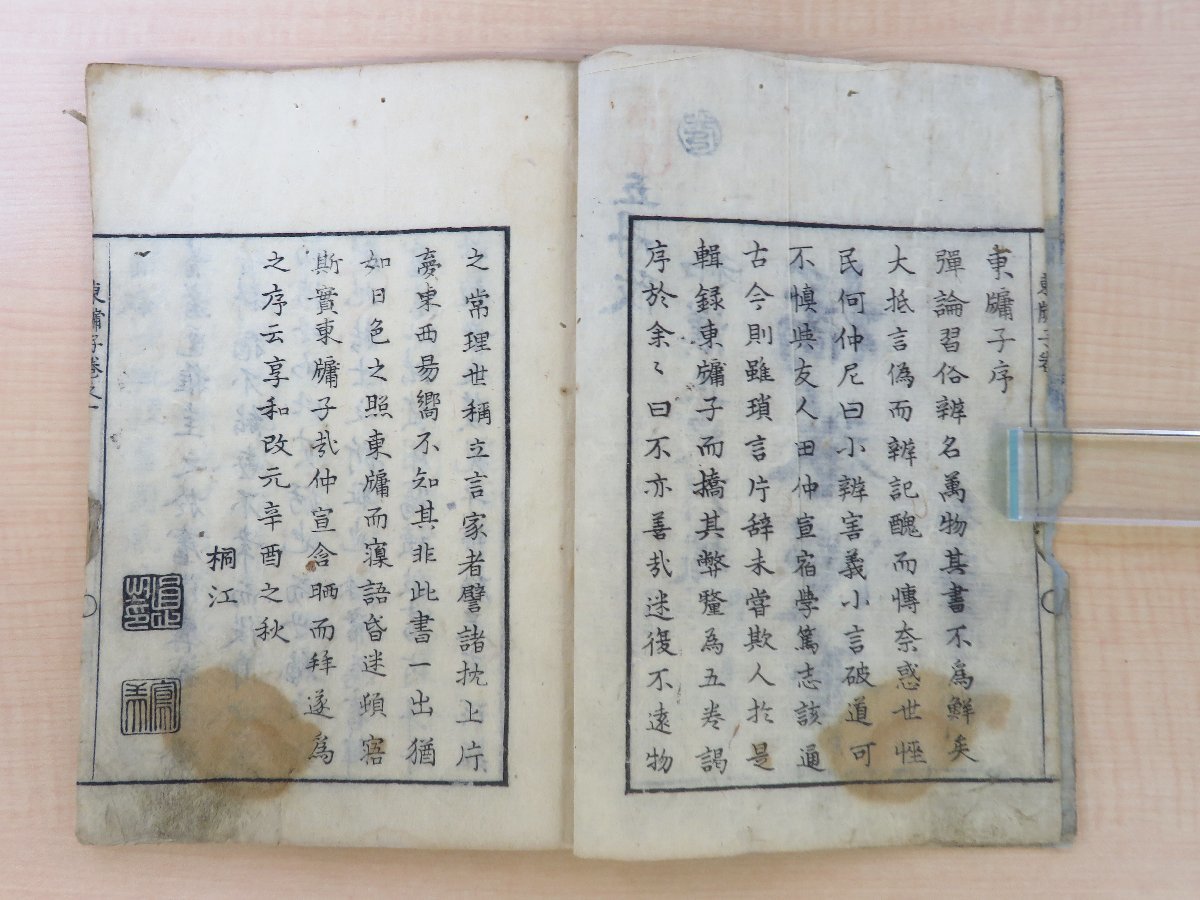 東牖子序
彈論習俗辨名萬物其書不爲鮮矣
大抵言偽而辨記醜而慱奈惑世怪
民何仲尼曰小辨害義小言破道可
不慎與友人田仲宣宿學篤志該通
古今則雖瑣言片辞未嘗欺人於是
輯録東牖子而撟其弊釐為五卷謁
序於余〻曰不亦善哉迷復不遠物
之常理世稱立言家者譬諸枕上片
夢東西易嚮不知其非此書一出猶
如日色之照東牖而㝱語昏迷頓寤
斯實東牖子哉仲宣含哂而拜遂爲
之序云享和改元辛酉之秋
桐江
東牖子卷之一